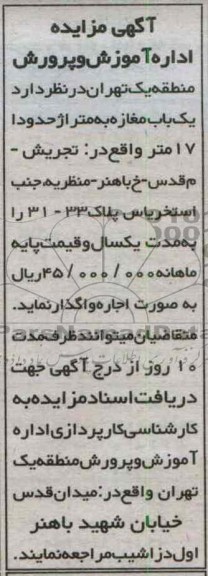 آگهی مزایده
اداره آموزش وپرورش
منطقه یک تهران در نظر دارد
یک باب مغازه به متراژ حدودا
۱۷ متر واقع در: تجریش -
م قدس-خ باهنر-منظریه،جنب
استخر یاس پلاک ۳۳ - ۳۱ را
به مدت یکسال وقیمت پایه
ماهانه ۴۵/۰۰۰/۰۰۰ ریال
به صورت اجاره واگذار نماید.
متقاضیان میتوانند ظرف مدت
۱۰ روز از درج آگهی جهت
دریافت اسناد مزایده به
کارشناسی کارپردازی اداره
آموزش وپرورش منطقه یک
تهران واقع در: میدان قدس
خیابان شهید باهنر
اول دزاشیب مراجعه نمایند.